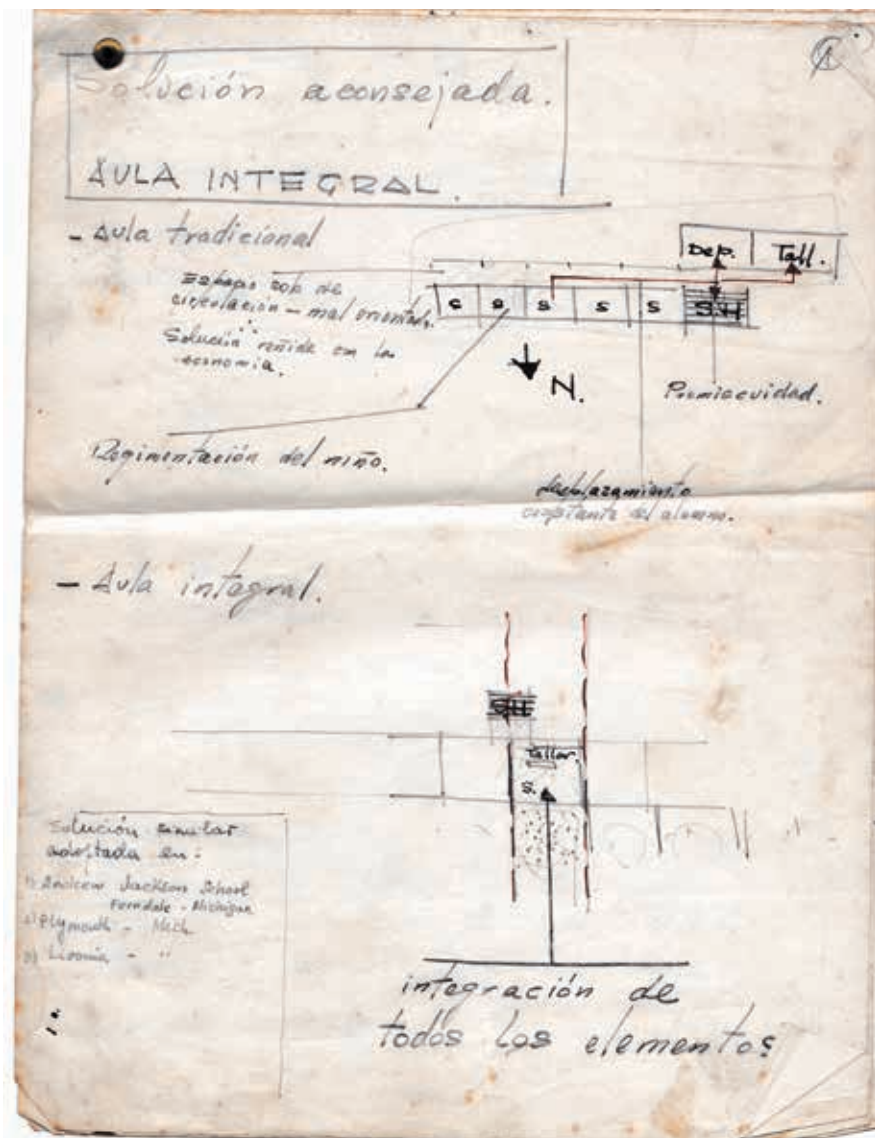 Solución aconsejada.
AULA INTEGRAL.
- Aula tradicional
Dep. Tall.
Espacio solo de
circulación - mal orientado.
s s s s s S.H
Solución reñida con la
economía.
N.
Promiscuidad.
Regimentación del niño.
desplazamiento
constante del alumno.
- Aula integral.
SH
Taller.
S.
Solución similar
adoptada en:
1) Andrew Jackson School
Ferndale - Michigan
2) Plymouth - Mich
3) Livonia - "
integración de
todos los elementos